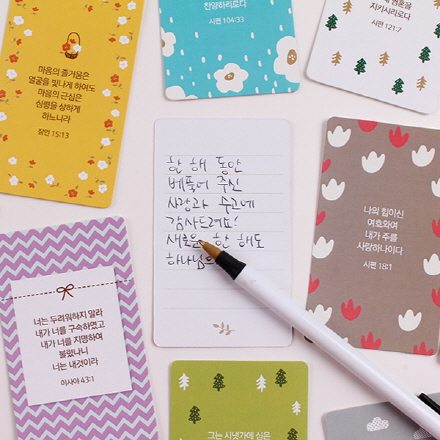 찬양하리로다
시편 104:33
지키시리로다
시편 121:7
마음의 즐거움은
얼굴을 빛나게 하여도
마음의 근심은
심령을 상하게
하느니라
잠언 15:13
한 해 동안
베풀어 주신
사랑과 수고에
감사드려요!
새로운 한 해도
하나님의
나의 힘이신
여호와여
내가 주를
사랑하나이다
시편 18:1
너는 두려워하지 말라
내가 너를 구속하였고
내가 너를 지명하여
불렀나니
너는 내것이라
이사야 43:1
그는 시냇가에 심은